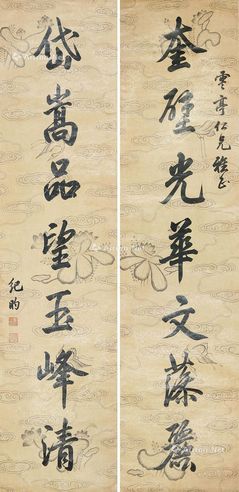 奎壁光華文藻麗
雲亭仁兄雅正
岱嵩品望玉峰清
紀昀